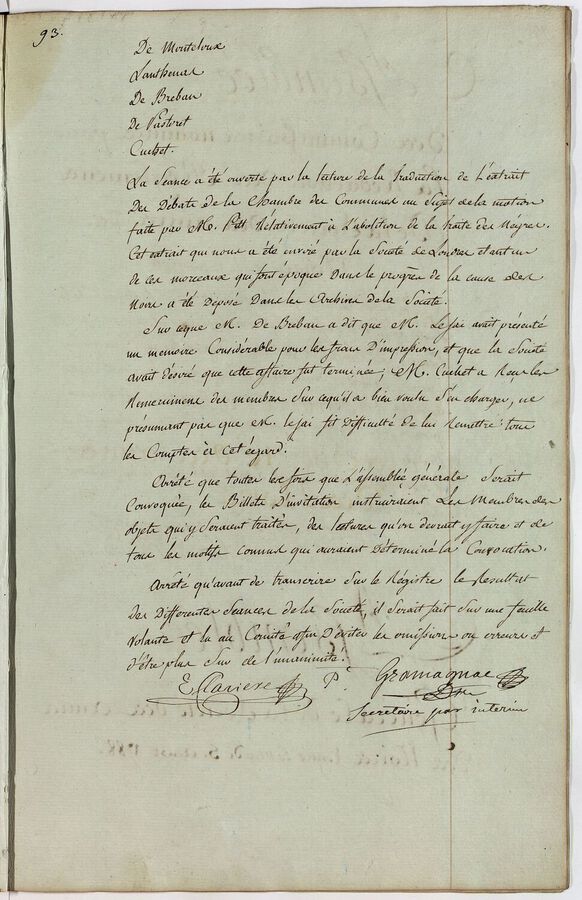 93.
De Montcloux
Lanthenas
De Breban
De Pastoret
Cuchet.
La Séance a été ouverte par la lecture de la traduction de L'extrait
Des Débats de la Chambre des Communes au Sujet de la motion
faite par M. Pitt Rélativement à L'abolition de la traite des Négres.
Cet extrait qui nous a été envoié par la Société de Londres étant un
de ces morceaux qui font époque Dans le progrès de la cause des
Noirs a été Déposé Dans les Archives de la Société.
Sur ce que M. De Breban a dit que M. Le Jai avait présenté
un mémoire Considérable pour les frais D'impression, et que la Société
avait désiré que cette affaire fut terminée, M. Cuchet a Reçu les
Remerciemens des membres Sur ce qu'il a bien voulu S'en charger, ne
présumant pas que M. le Jai fit Difficulté de lui Remettre tous
les Comptes à cet égard.
Arrêté que toutes les fois que L'assemblée générale Serait
Convoquée, les Billets D'invitation instruiraient Les Membres des
objets qui y Seraient traités, des lectures qu'on devrait y faire et de
tous les motifs connus qui auraient Déterminé la Convocation.
Arrêté qu'avant de transcrire Sur le Régistre le Resultat
Des Differentes Séances de la Société, il Serait fait Sur une feuille
Volante et lu au Comité afin D'éviter les omissions ou erreurs et
d'être plus Sur de l'unanimité.
E. Claviere P. Gramagnac
Secretaire par interim